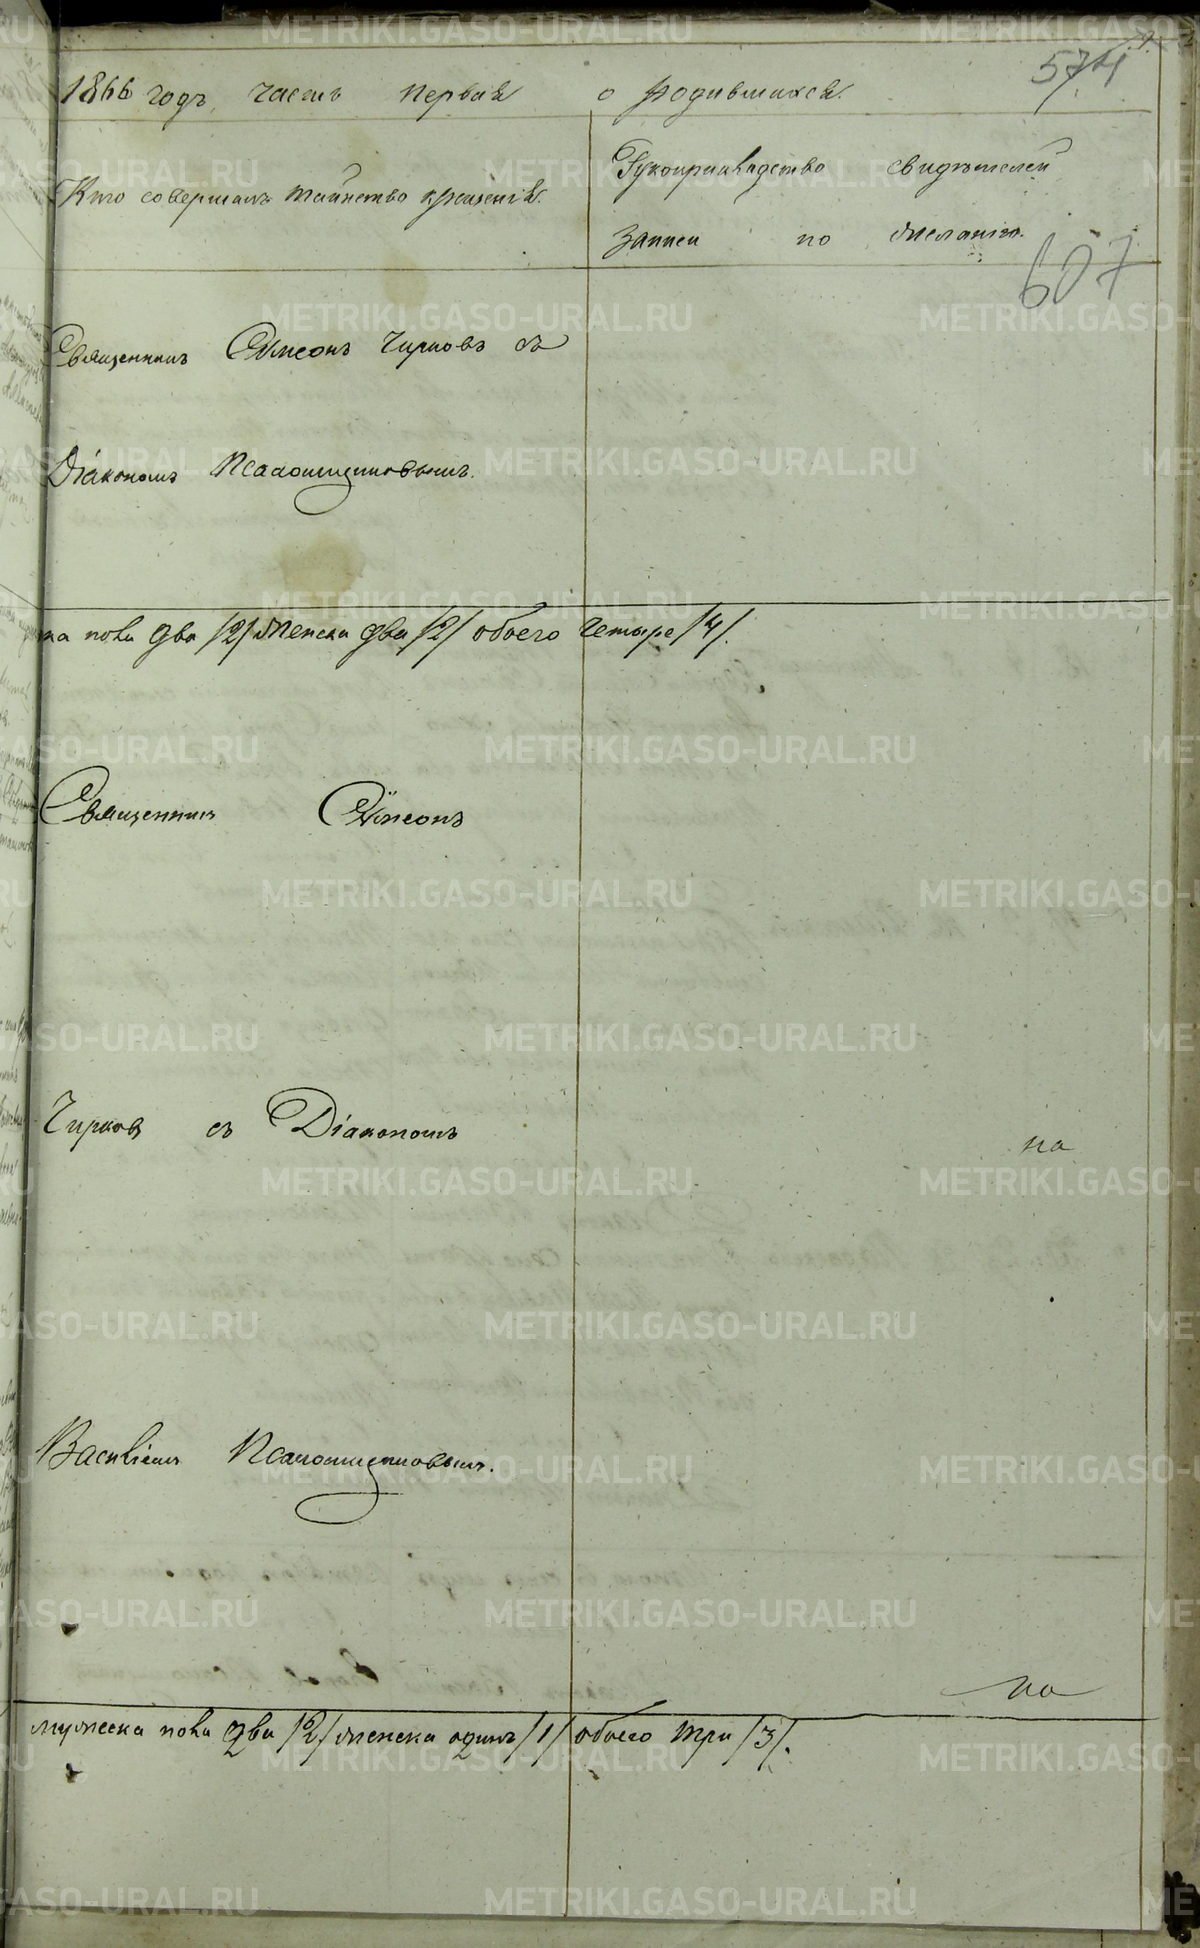 1866 годъ часть первая о родившихся.
574
Кто совершалъ таинство крещенія.
Рукоприкладство свидѣтелей
записи по желанію.
607
Священникъ Сѵмеонъ Чирковъ съ
Діакономъ Псаломщиковымъ.
на пола два /2/ женска два /2/ обоего четыре /4/.
Священникъ Сѵмеонъ
Чирковъ съ Діакономъ
на
Василіемъ Псаломщиковымъ.
по
мужеска пола два /2/ женска одинъ /1/ обоего три /3/.
METRIKI.GASO-URAL.RU